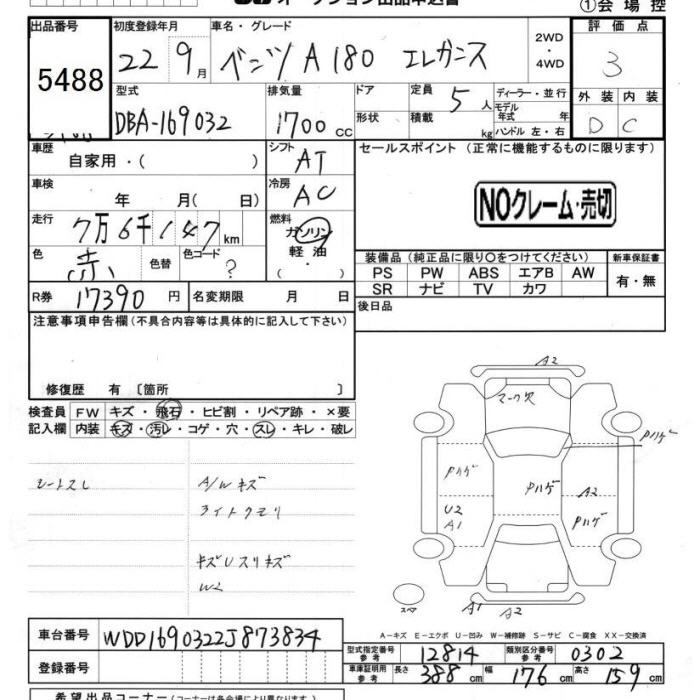 ①会場控
出品番号 初度登録年月 車名・グレード 2WD ・ 4WD 評価点
5488 22 9月 ベンツ A180 エレガンス 3
型式 排気量 ドア 定員 5人 ディーラー・並行 外装 内装
DBA-169032 1700cc 形状 積載 kg モデル年式 年 ハンドル 左・右 D C
車歴 自家用・( ) シフト AT セールスポイント(正常に機能するものに限ります)
車検 年 月( 日) 冷房 AC
NOクレーム・売切
走行 7万6千147km 燃料 ガソリン 軽油 ・( )
色 赤 色替 色コード ?
装備品(純正品に限り○をつけてください) 新車保証書
PS PW ABS エアB AW 有・無
SR ナビ TV カワ
R券 17390円 名変期限 月 日
後日品
注意事項申告欄(不具合内容等は具体的に記入して下さい)
修復歴 有〔箇所 〕
検査員 FW キズ・飛石・ヒビ割・リペア跡・×要
記入欄 内装 キズ・汚レ・コゲ・穴・スレ・キレ・破レ
シートスレ A/Wキズ
ライトクモリ
キズUスリキズ
W2
A2
マーク穴
Pハゲ
Pハゲ
Pハゲ
A2
U2
A1
Pハゲ
スペア
A1
A2
A-キズ E-エクボ U-凹み W-補修跡 S-サビ C-腐食 XX-交換済
車台番号 WDD1690322J873834
型式指定番号 参考 12814 類別区分番号 参考 0302
登録番号
車庫証明用 参考 長さ 388cm 幅 176cm 高さ 159cm
希望出品コーナー